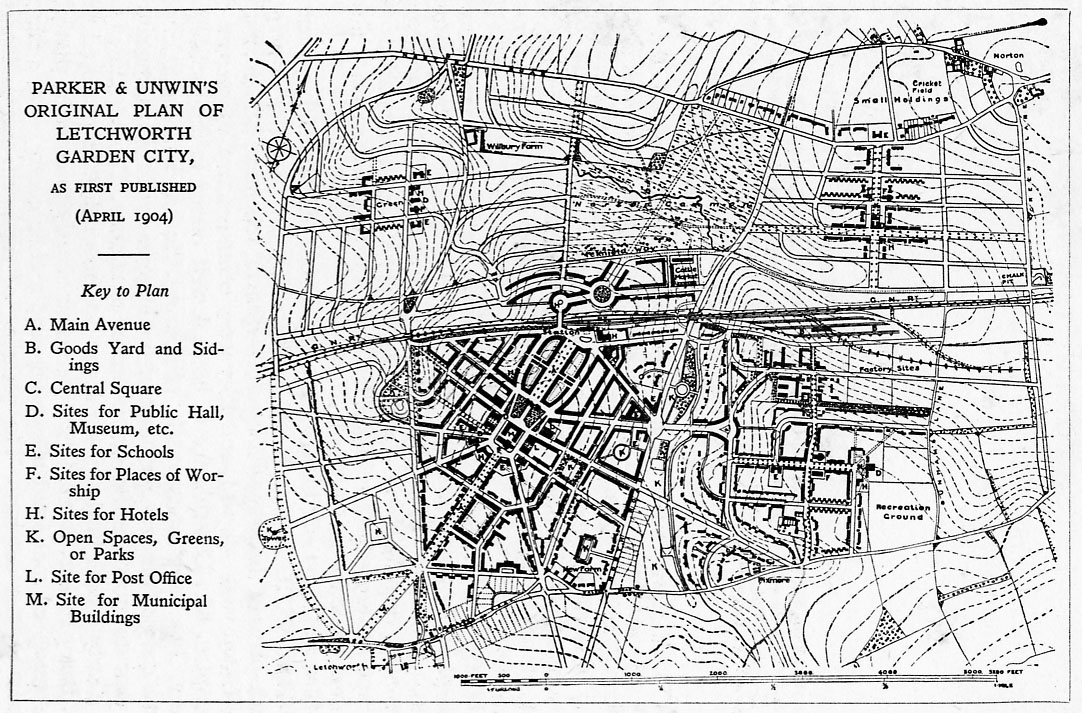 PARKER & UNWIN'S
ORIGINAL PLAN OF
LETCHWORTH
GARDEN CITY,
AS FIRST PUBLISHED
(APRIL 1904)
Key to Plan
A. Main Avenue
B. Goods Yard and Sid-
ings
C. Central Square
D. Sites for Public Hall,
Museum, etc.
E. Sites for Schools
F. Sites for Places of Wor-
ship
H. Sites for Hotels
K. Open Spaces, Greens,
or Parks
L. Site for Post Office
M. Site for Municipal
Buildings
Norton
Cricket
Field
Small Holdings
E
Wilbury Farm
E
H
Green
D
E
Norton Common
Cattle
Market
CHALK
PIT
G. N. RY.
G. N. RY.
Station
Factory Sites
K
K
D
Recreation
Ground
New Farm
K
Pixmore
K
Letchworth
1000 FEET 500 0 1000 2000 3000 4000 5000 5280 FEET
1 MILE